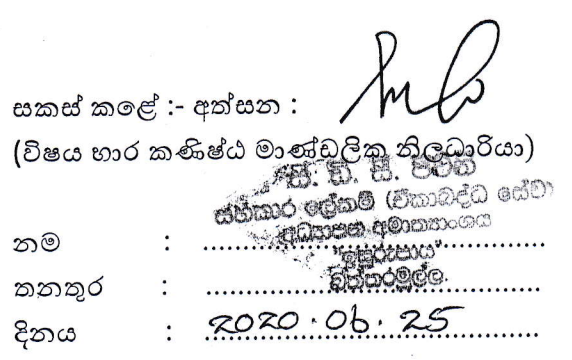 සකස් කළේ :- අත්සන :
(විෂය භාර කණිෂ්ඨ මාණ්ඩලික නිලධාරියා)
සහකාර ලේකම් (ඒකාබද්ධ සේවා
අධ්‍යාපන අමාත්‍යාංශය
"ඉසුරුපාය"
බත්තරමුල්ල.
නම :
තනතුර :
දිනය : 2020.06.25